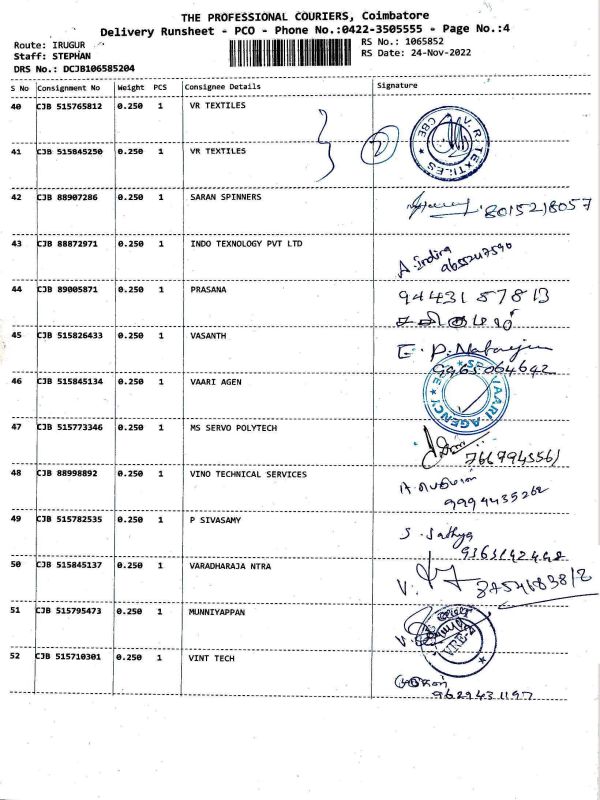 THE PROFESSIONAL COURIERS, Coimbatore
Delivery Runsheet - PCO - Phone No.:0422-3505555 - Page No.:4
Route: IRUGUR
Staff: STEPHAN
DRS No.: DCJB106585204
RS No.: 1065852
RS Date: 24-Nov-2022
S No Consignment No Weight PCS Consignee Details Signature
40 CJB 515765812 0.250 1 VR TEXTILES
V.R. TEXTILES CBE
2
41 CJB 515845250 0.250 1 VR TEXTILES
42 CJB 88907286 0.250 1 SARAN SPINNERS 8015218057
43 CJB 88872971 0.250 1 INDO TEXNOLOGY PVT LTD A. Indira
9655247590
44 CJB 89005871 0.250 1 PRASANA 9443157813
45 CJB 515826433 0.250 1 VASANTH E. P. Natarajan
9965064642
46 CJB 515845134 0.250 1 VAARI AGEN
VAARI AGENCY CBE
47 CJB 515773346 0.250 1 MS SERVO POLYTECH
7667945561
48 CJB 88998892 0.250 1 VINO TECHNICAL SERVICES
9994435262
49 CJB 515782535 0.250 1 P SIVASAMY S. Sathya
9363142448
50 CJB 515845137 0.250 1 VARADHARAJA NTRA V. 8754183812
51 CJB 515795473 0.250 1 MUNNIYAPPAN
52 CJB 515710301 0.250 1 VINT TECH
9629431197